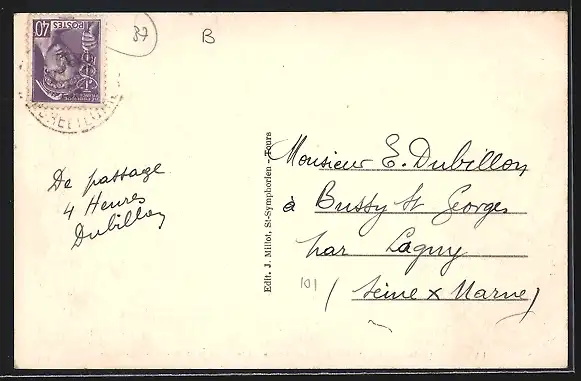 40
POSTES
37
B
De passage
4 Heures
Dubillon
Edit. J. Millot, St-Symphorien - Tours
Monsieur E. Dubillon
à Bussy St Georges
par Lagny
101
(Seine x Marne)